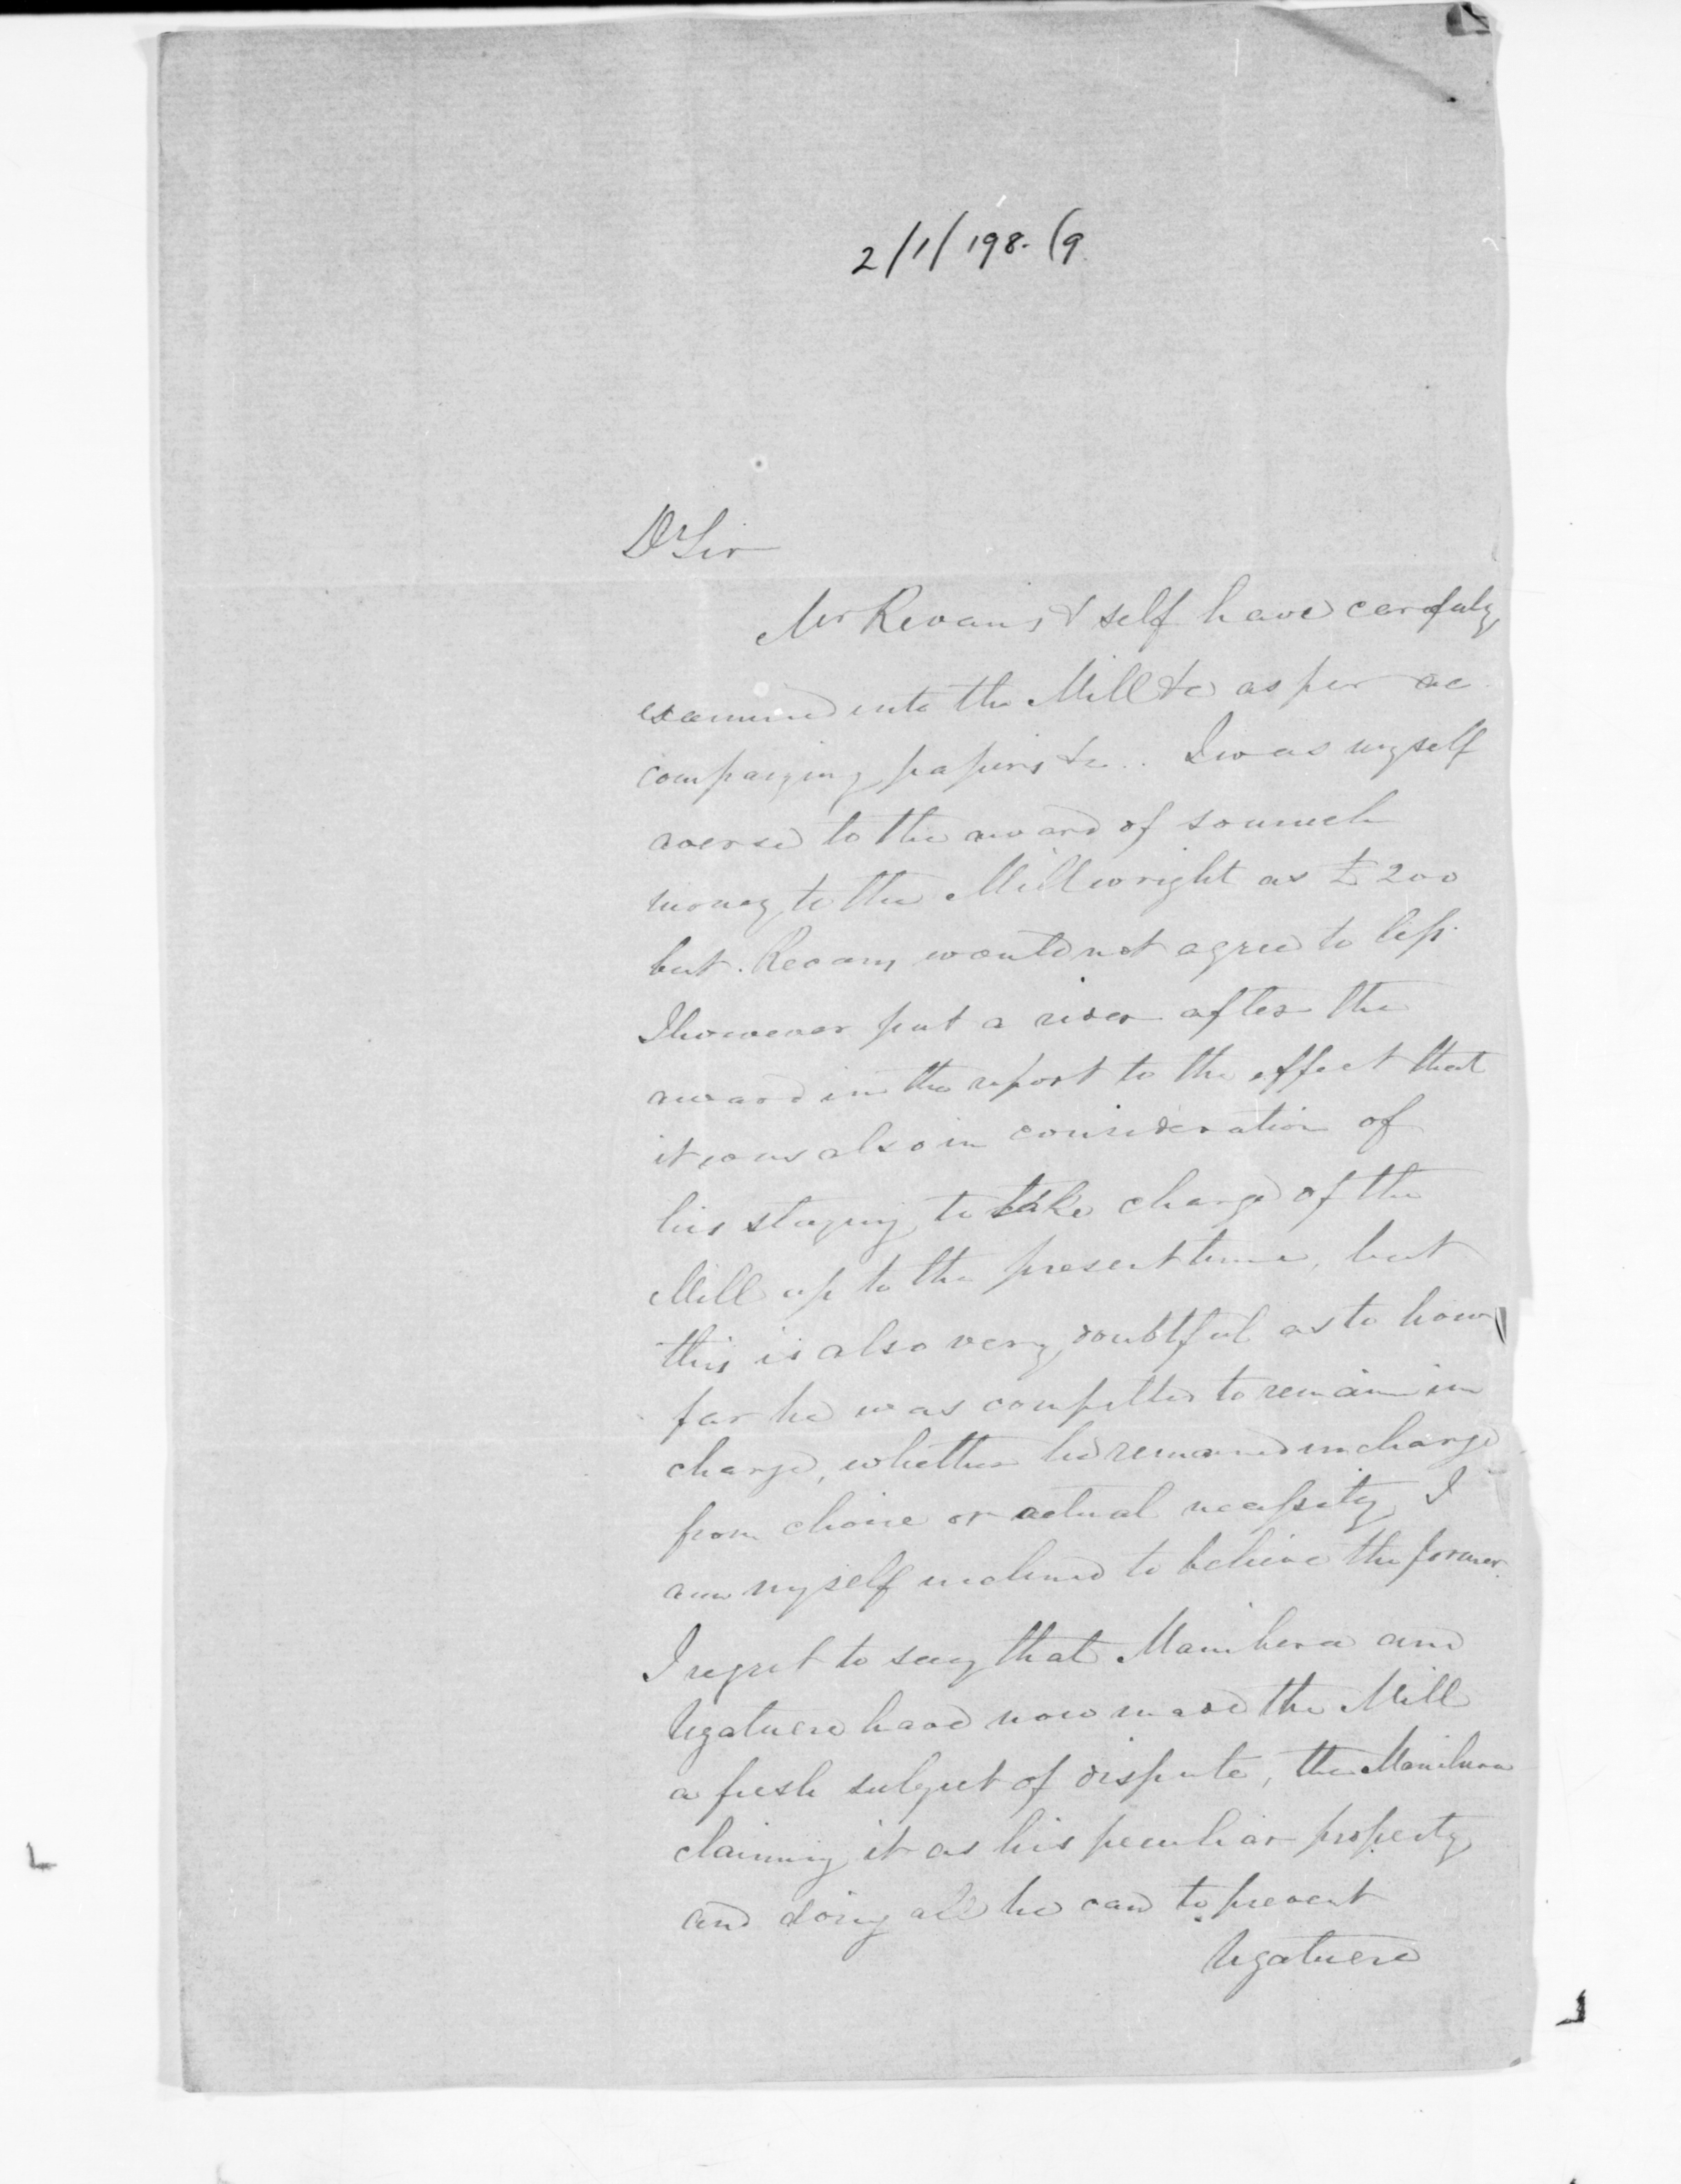 2/1/198. (9.
Dr Sir
Mr Revans & self have carefuly
examined into the Mill &c as per ac
companying papers &c.. I was myself
averse to the award of so much
money to the Millwright as £200
but. Revans would not agree to less.
I however put a rider after the
award in the report to the effect that
it was also in consideration of
his staying to take charge of the
Mill up to the present time, but
this is also very doubtful as to how
far he was compelled to remain in
charge, whether he remained in charge
from choice or actual necessity, I
am myself inclined to believe the former.
I regret to say that Manihera and
Ngatuere have now made the Mill
a fresh subject of dispute, the Manihera
claiming it as his peculiar property
and doing all he can to prevent
Ngatuere